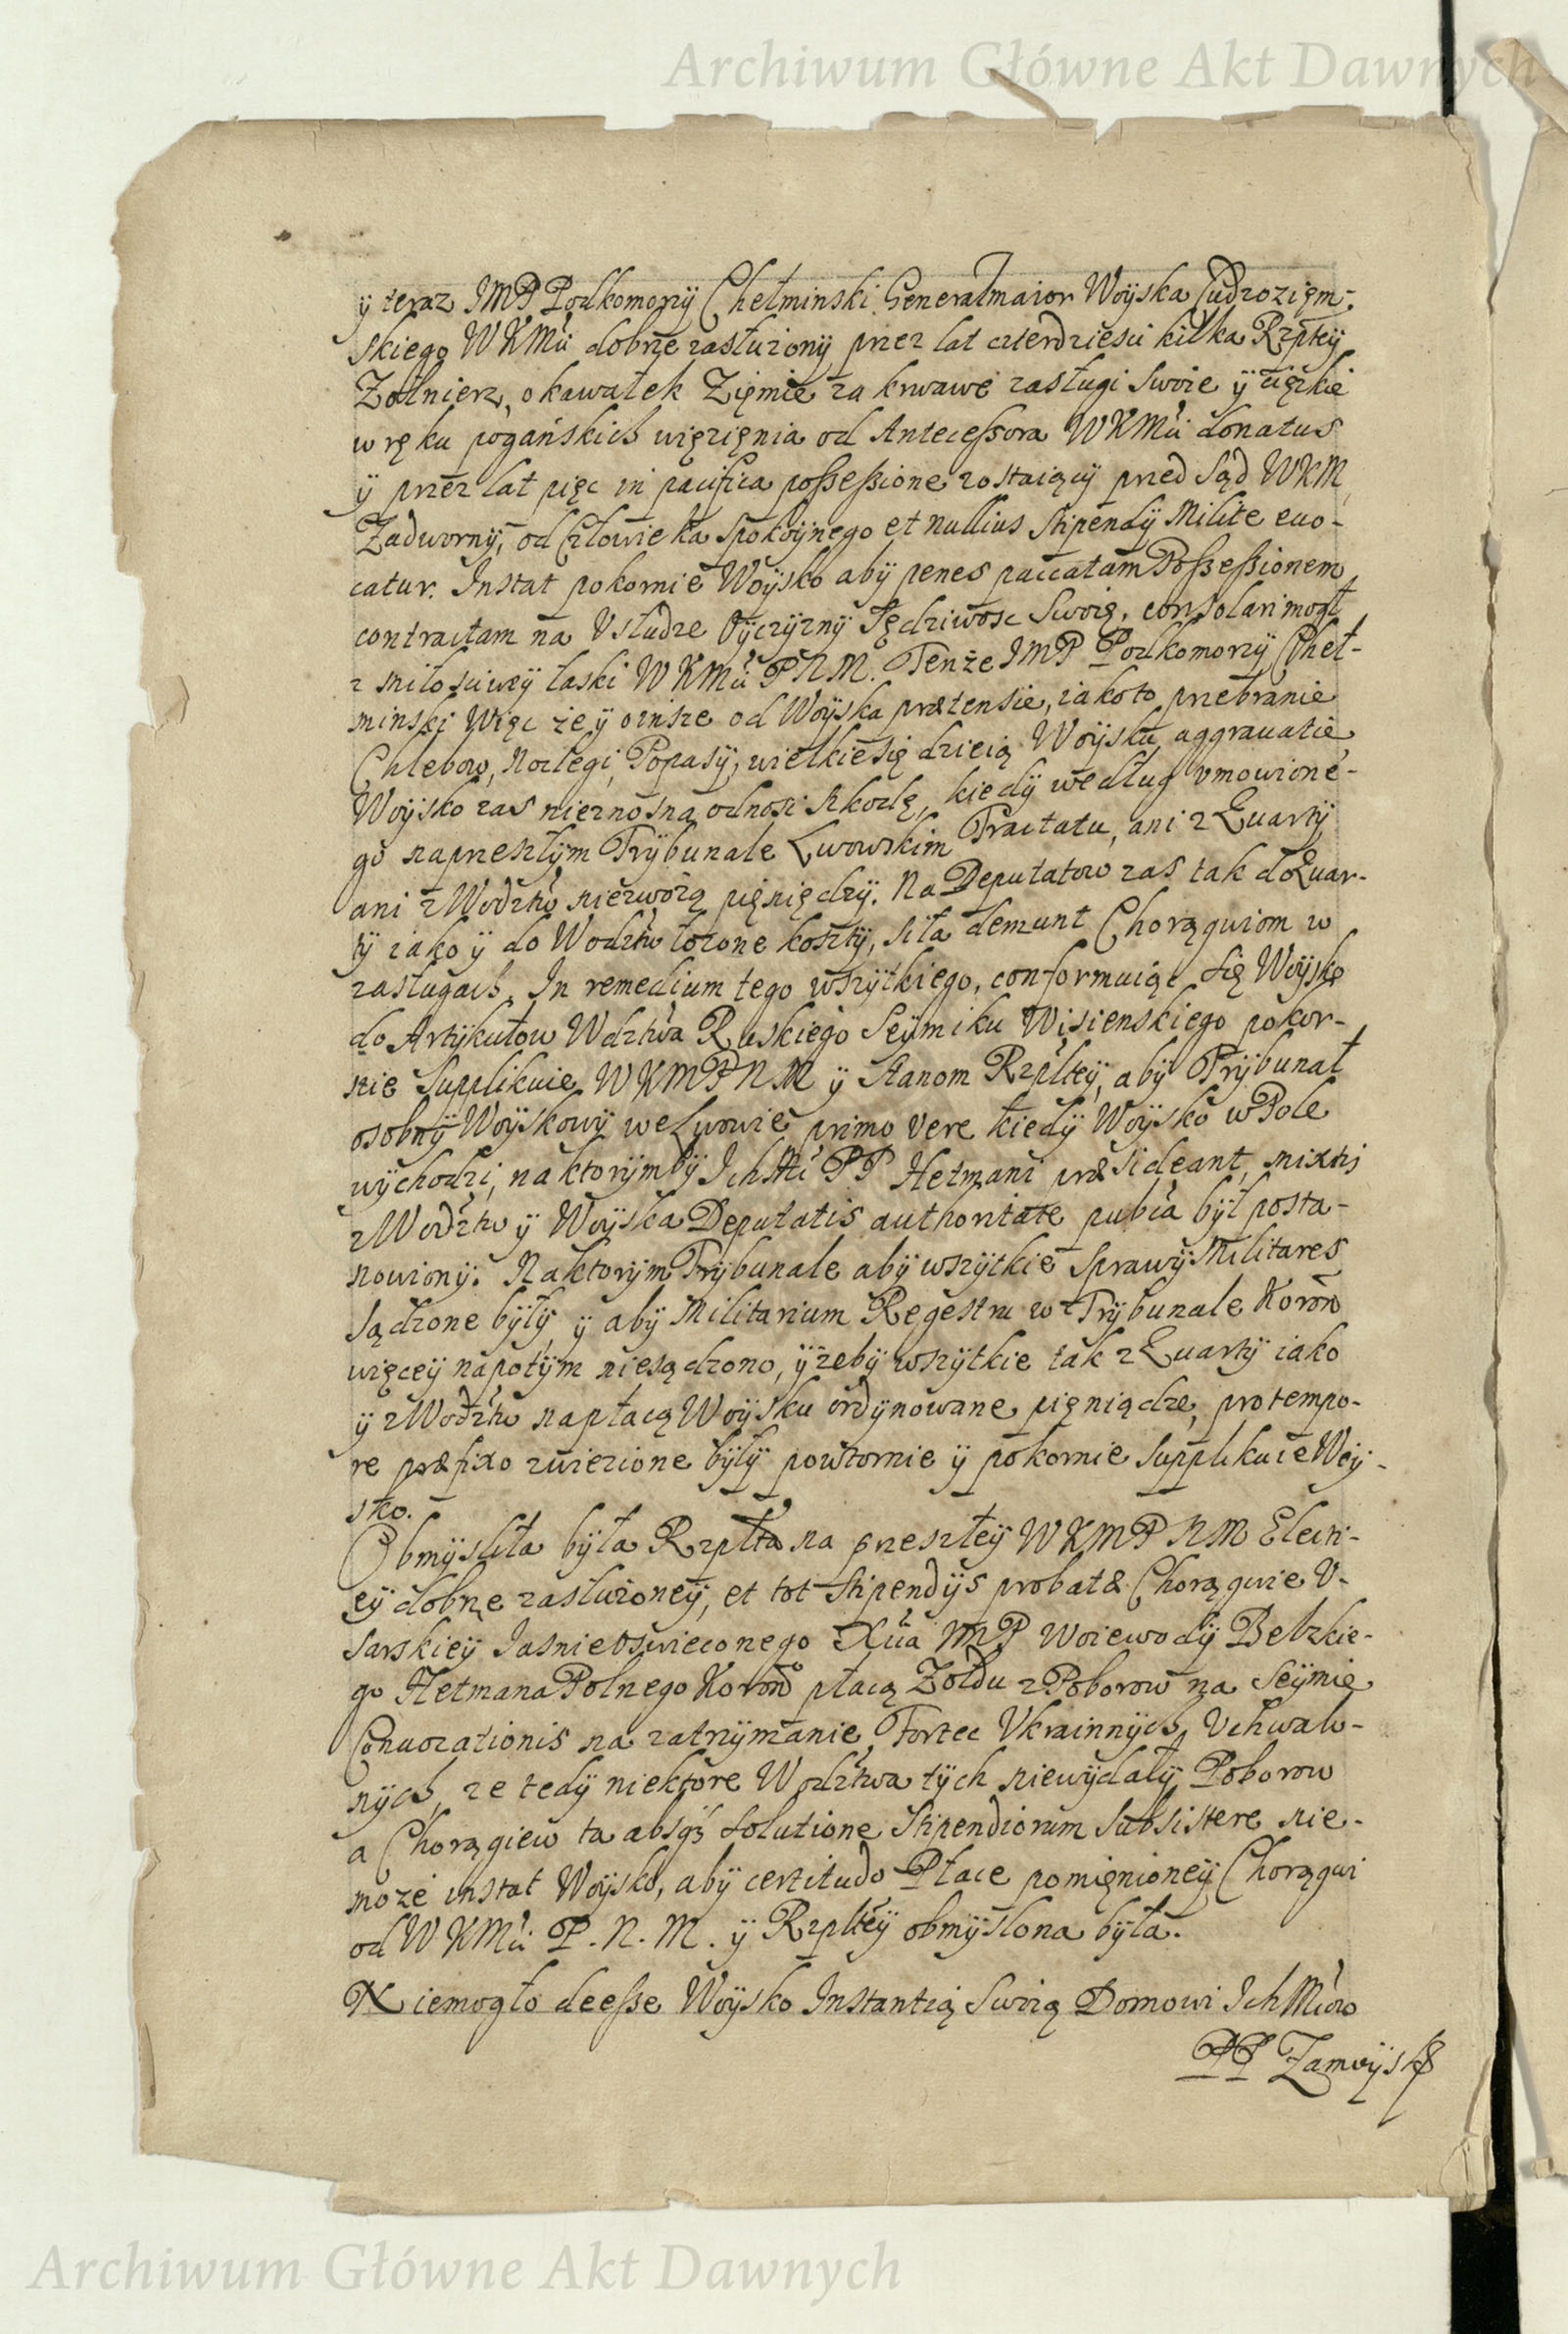 Archiwum Główne Akt Dawnych
ÿ teraz JMP Podkomorzÿ Chełminski Generałmaior Woÿska Cudroziem-
skiego WKMci dobrze zasłużonÿ przez lat czterdziesci kilka Rzpteÿ
Żołnierz, o kawałek Ziemie za krwawe zasługi swoie ÿ cięzkie
w ręku pogańskich więzięnia od Antecessora WKMci donatus
ÿ przez lat pięc in pacifica possessione zostaiącÿ przed Sąd WKM
Zadwornÿ, od Człowieka spokoÿnego et nullius stipendÿ Milite euo-
catur. Instat pokornie Woÿsko abÿ penes paccatam Possessionem
contractam na Usłudze Oÿczÿznÿ Sędziwosc Swoię, consolari mogł
z miłosciweÿ łaski WKMci PNM. Tenże JMP Podkomorzÿ Cheł-
minski Więc że ÿ oinsze od Woÿska prætensie, iakoto przebranie
Chlebow, Noclegi, Popasÿ, wielkie się dzieią Woÿsku aggrauatie,
Woÿsko zas nieznosną odnosi szkodę, kiedÿ według vmowione-
go na przeszłÿm Trÿbunale Lwowskim Tractatu, ani z Quartÿ
ani z Wodztw niezwożą pięniędzÿ. Na Deputatow zas tak do Quar-
tÿ iako ÿ do Wodztw łożone kosztÿ, siła demunt Chorągwiom w
zasługach. In remedium tego wszÿtkiego, conformuiąc się Woÿsko
do Artÿkułow Wdztwa Ruskiego Seÿmiku Wisienskiego pokor-
nie Supplikuie WKMPNM ÿ Stanom Rzplteÿ, abÿ Trÿbunał
osobnÿ Woÿskowÿ we Lwowie primo Vere kiedÿ Woÿsko w Pole
wÿchodzi, na ktorÿmbÿ Ich Mci PP Hetmani præsideant, mixtis
z Wodztw ÿ Woÿska Deputatis authoritate pub̃ca bÿł posta-
nowionÿ. Na ktorÿm Trÿbunale abÿ wszÿtkie Sprawÿ Militares
Sądzone bÿłÿ ÿ abÿ Militarium Regestru w Trÿbunale Koron̄
więceÿ napotÿm niesądzono, ÿ żebÿ wszÿtkie tak z Quartÿ iako
ÿ z Wodztw na płacą Woÿsku ordÿnowane pięniądze, pro tempo-
re præfixo zwiezione bÿłÿ powtornie ÿ pokornie Supplikuie Woÿ-
sko.
Obmÿsliła bÿła Rzplta na przeszłeÿ WKMPNM Electi-
eÿ dobrze zasłużoneÿ, et tot stipendÿs probatæ Chorągwie V-
sarskieÿ Jasnie Oswieconego Xcia JMP Woiewodÿ Bełzkie-
go Hetmana Polnego Koron̄ płacą Żołdu z Poborow na Seÿmie
Conuocationis na zatrzÿmanie Fortec Vkrainnÿch, Vchwalo-
nÿch, że tedÿ niektore Wodztwa tÿch niewÿdałÿ Poborow
a Chorągiew ta absqʒ solutione stipendiorum subsistere nie-
może instat Woÿsko, abÿ certitudo Płace pomięnioneÿ Chorągwi
od WKMci P. N. M. ÿ Rzpltey obmÿslona bÿła.
Niemogło deesse Woÿsko Instantią Swoią Domowi Ich Mciow
PP Zamoÿsk
Archiwum Główne Akt Dawnych